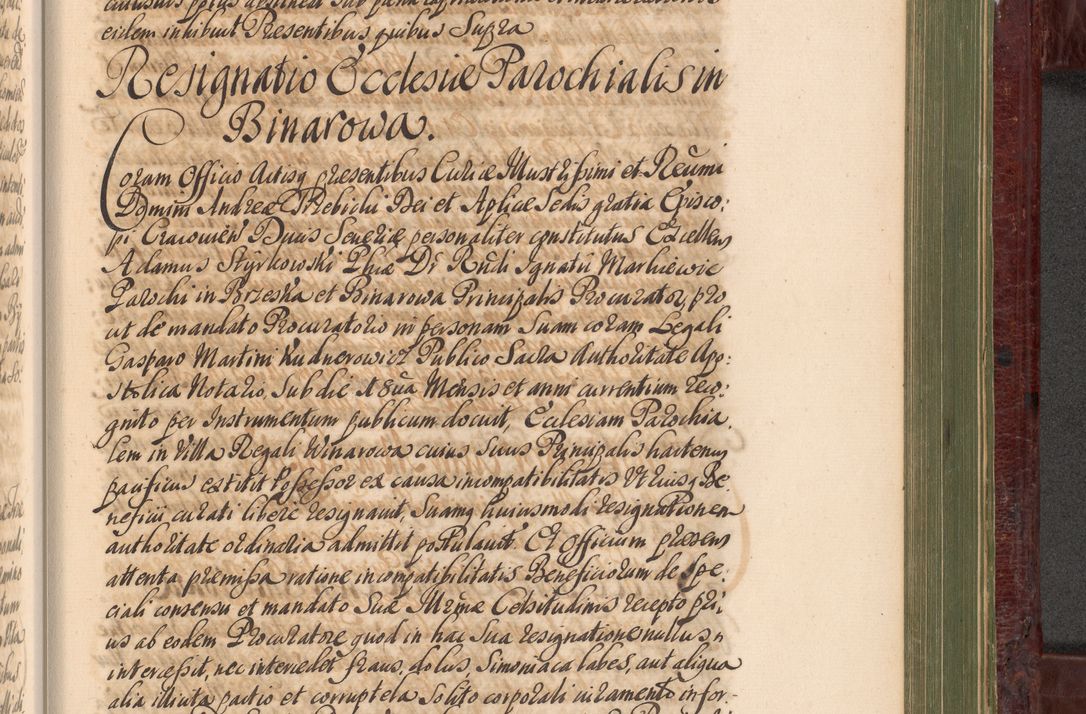 eidem inhibuit Presentibus quibus Supra
Resignatio Ecclesiæ Parochialis in
Binarowa.
Coram Officio Actisq presentibus Curiæ Illustrissimi et Reu͠mi
Domini Andreæ Trzebicki Dei et Aplicæ Sedis gratia Episco:
pi Cracouien Ducis Seueriæ personaliter constitutus Excellens
Adamus Styrkowski Phiæ Dr Rndi Ignatii Markiewic
Parochi in Brzeska et Binarowa Principalis Procurator, pro
ut de mandato Procuratorio in personam Suam coram Legali
Gasparo Martini Kudnerowicz Publico Sacra Authoritate Apo:
stolica Notario, Sub die Mensis et anni currentium reco:
gnito per Instrumentum publicum docuit, Ecclesiam Parochia
lem in Villa Regali Winarowa cuius Suus Principalis hactenus
pacificus extitit Possessor ex causa incompatibilitatis Vtriusq Be:
neficii curati libere resignauit, Suamq huiusmodi resignationem
authoritate ordinaria admitti postulauit. Et Officium presens
attenta præmissa ratione incompatibilitatis Beneficiorum de Spe:
ciali consensu et mandato Suæ Illrmæ Celsitudinis recepto pri,
us ab eodem Procuratore quod in hac Sua resignatione nullus
intercessit, nec intercedet fraus, dolus Simoniaca labes, aut aliqua
alia illicita pactio et corruptela Solito corporali iuramento infor-